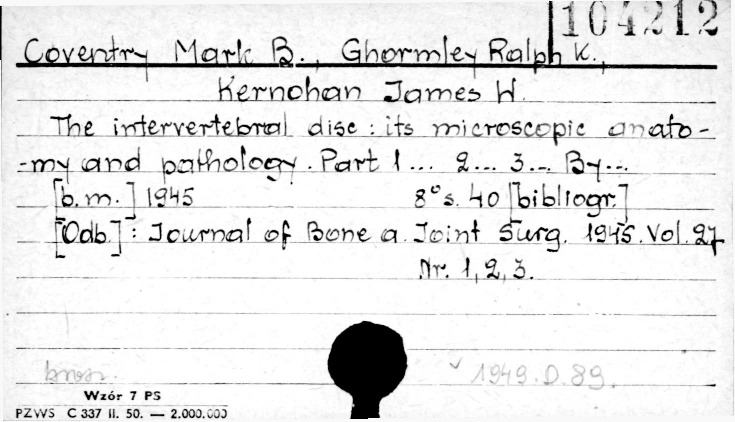 104212
Coventry Mark B., Ghormley Ralph K.,
Kernohan James W.
The intervertebral disc: its microscopic anato-
-my and pathology. Part 1... 2... 3... By...
[b.m.] 1945 8° s. 40 [bibliogr.]
[Odb.]: Journal of Bone a. Joint Surg. 1945. Vol. 27
Nr. 1, 2, 3.
brosz. 1949.D.89.
Wzór 7 PS
PZWS C 337 II. 50. — 2.000.000